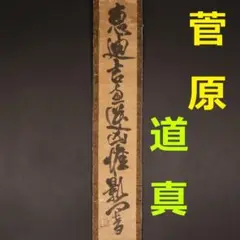 菅原
道真
惠迪吉从逆凶惟影響